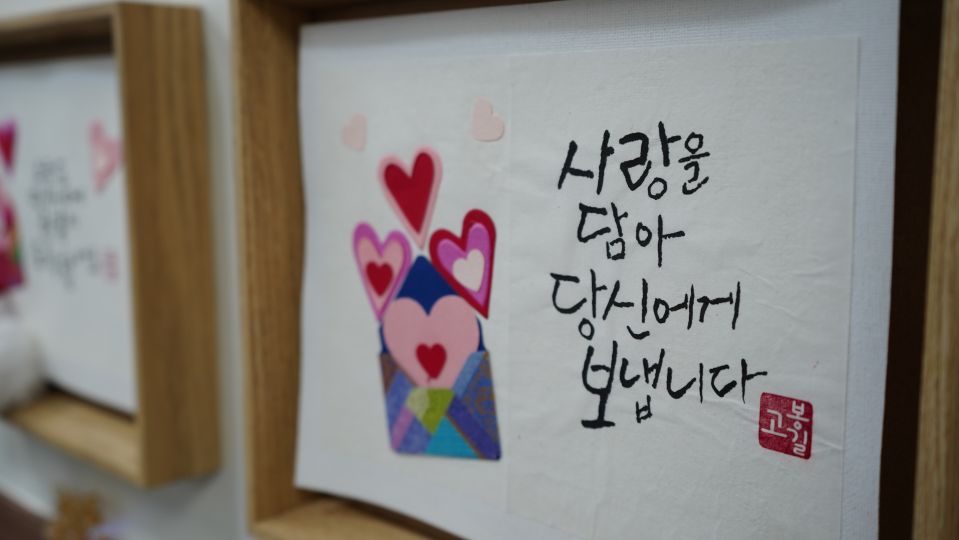 사랑을
담아
당신에게
보냅니다
고봉길